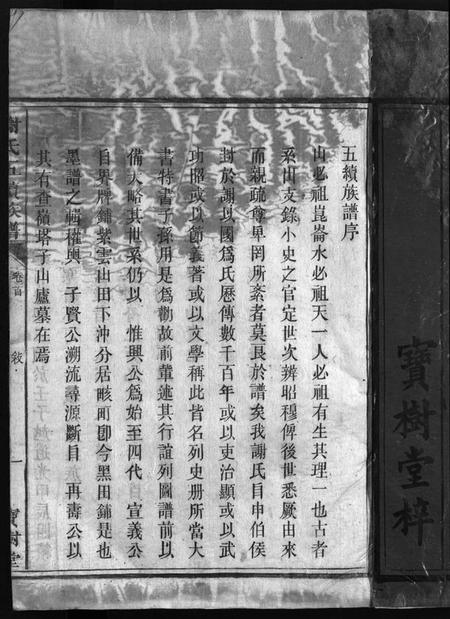 寶樹堂梓
五續族譜序
山必祖崑崙水必祖天一人必祖有生其理一也古者
系出支錄小史之官定世次辨昭穆俾後世悉厥由來
而親疏尊卑罔所紊者莫良於譜矣我謝氏自申伯侯
封於謝以國爲氏歷傳數千百年或以吏治顯或以武
功昭或以節義著或以文學稱此皆名列史册所當大
書特書子孫用是爲勸故前輩述其行誼列圖譜前以
備大略其世系仍以 惟興公爲始至四代 宣義公
自界牌鋪紫雲山田下沖分居畯町卽今黑田鋪是也
墨譜之輯權與 子賢公溯流尋源斷自 再濤公以
其有查嶺塔子山廬墓在焉
謝氏五續族譜
卷首
敘
一
寶樹堂